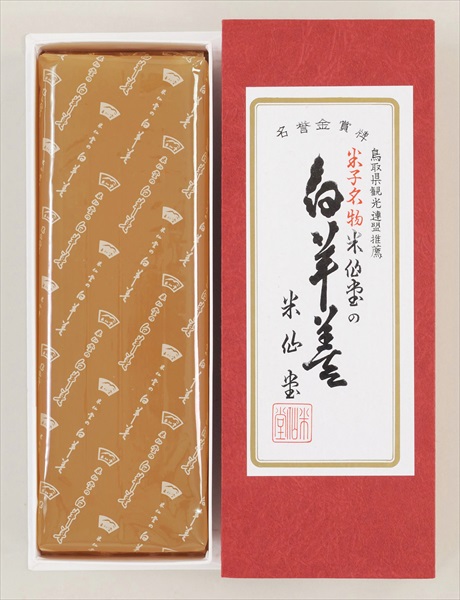 名誉金賞受
鳥取県観光連盟推薦
米子名物米仙堂の
白羊羹
米仙堂
米仙堂